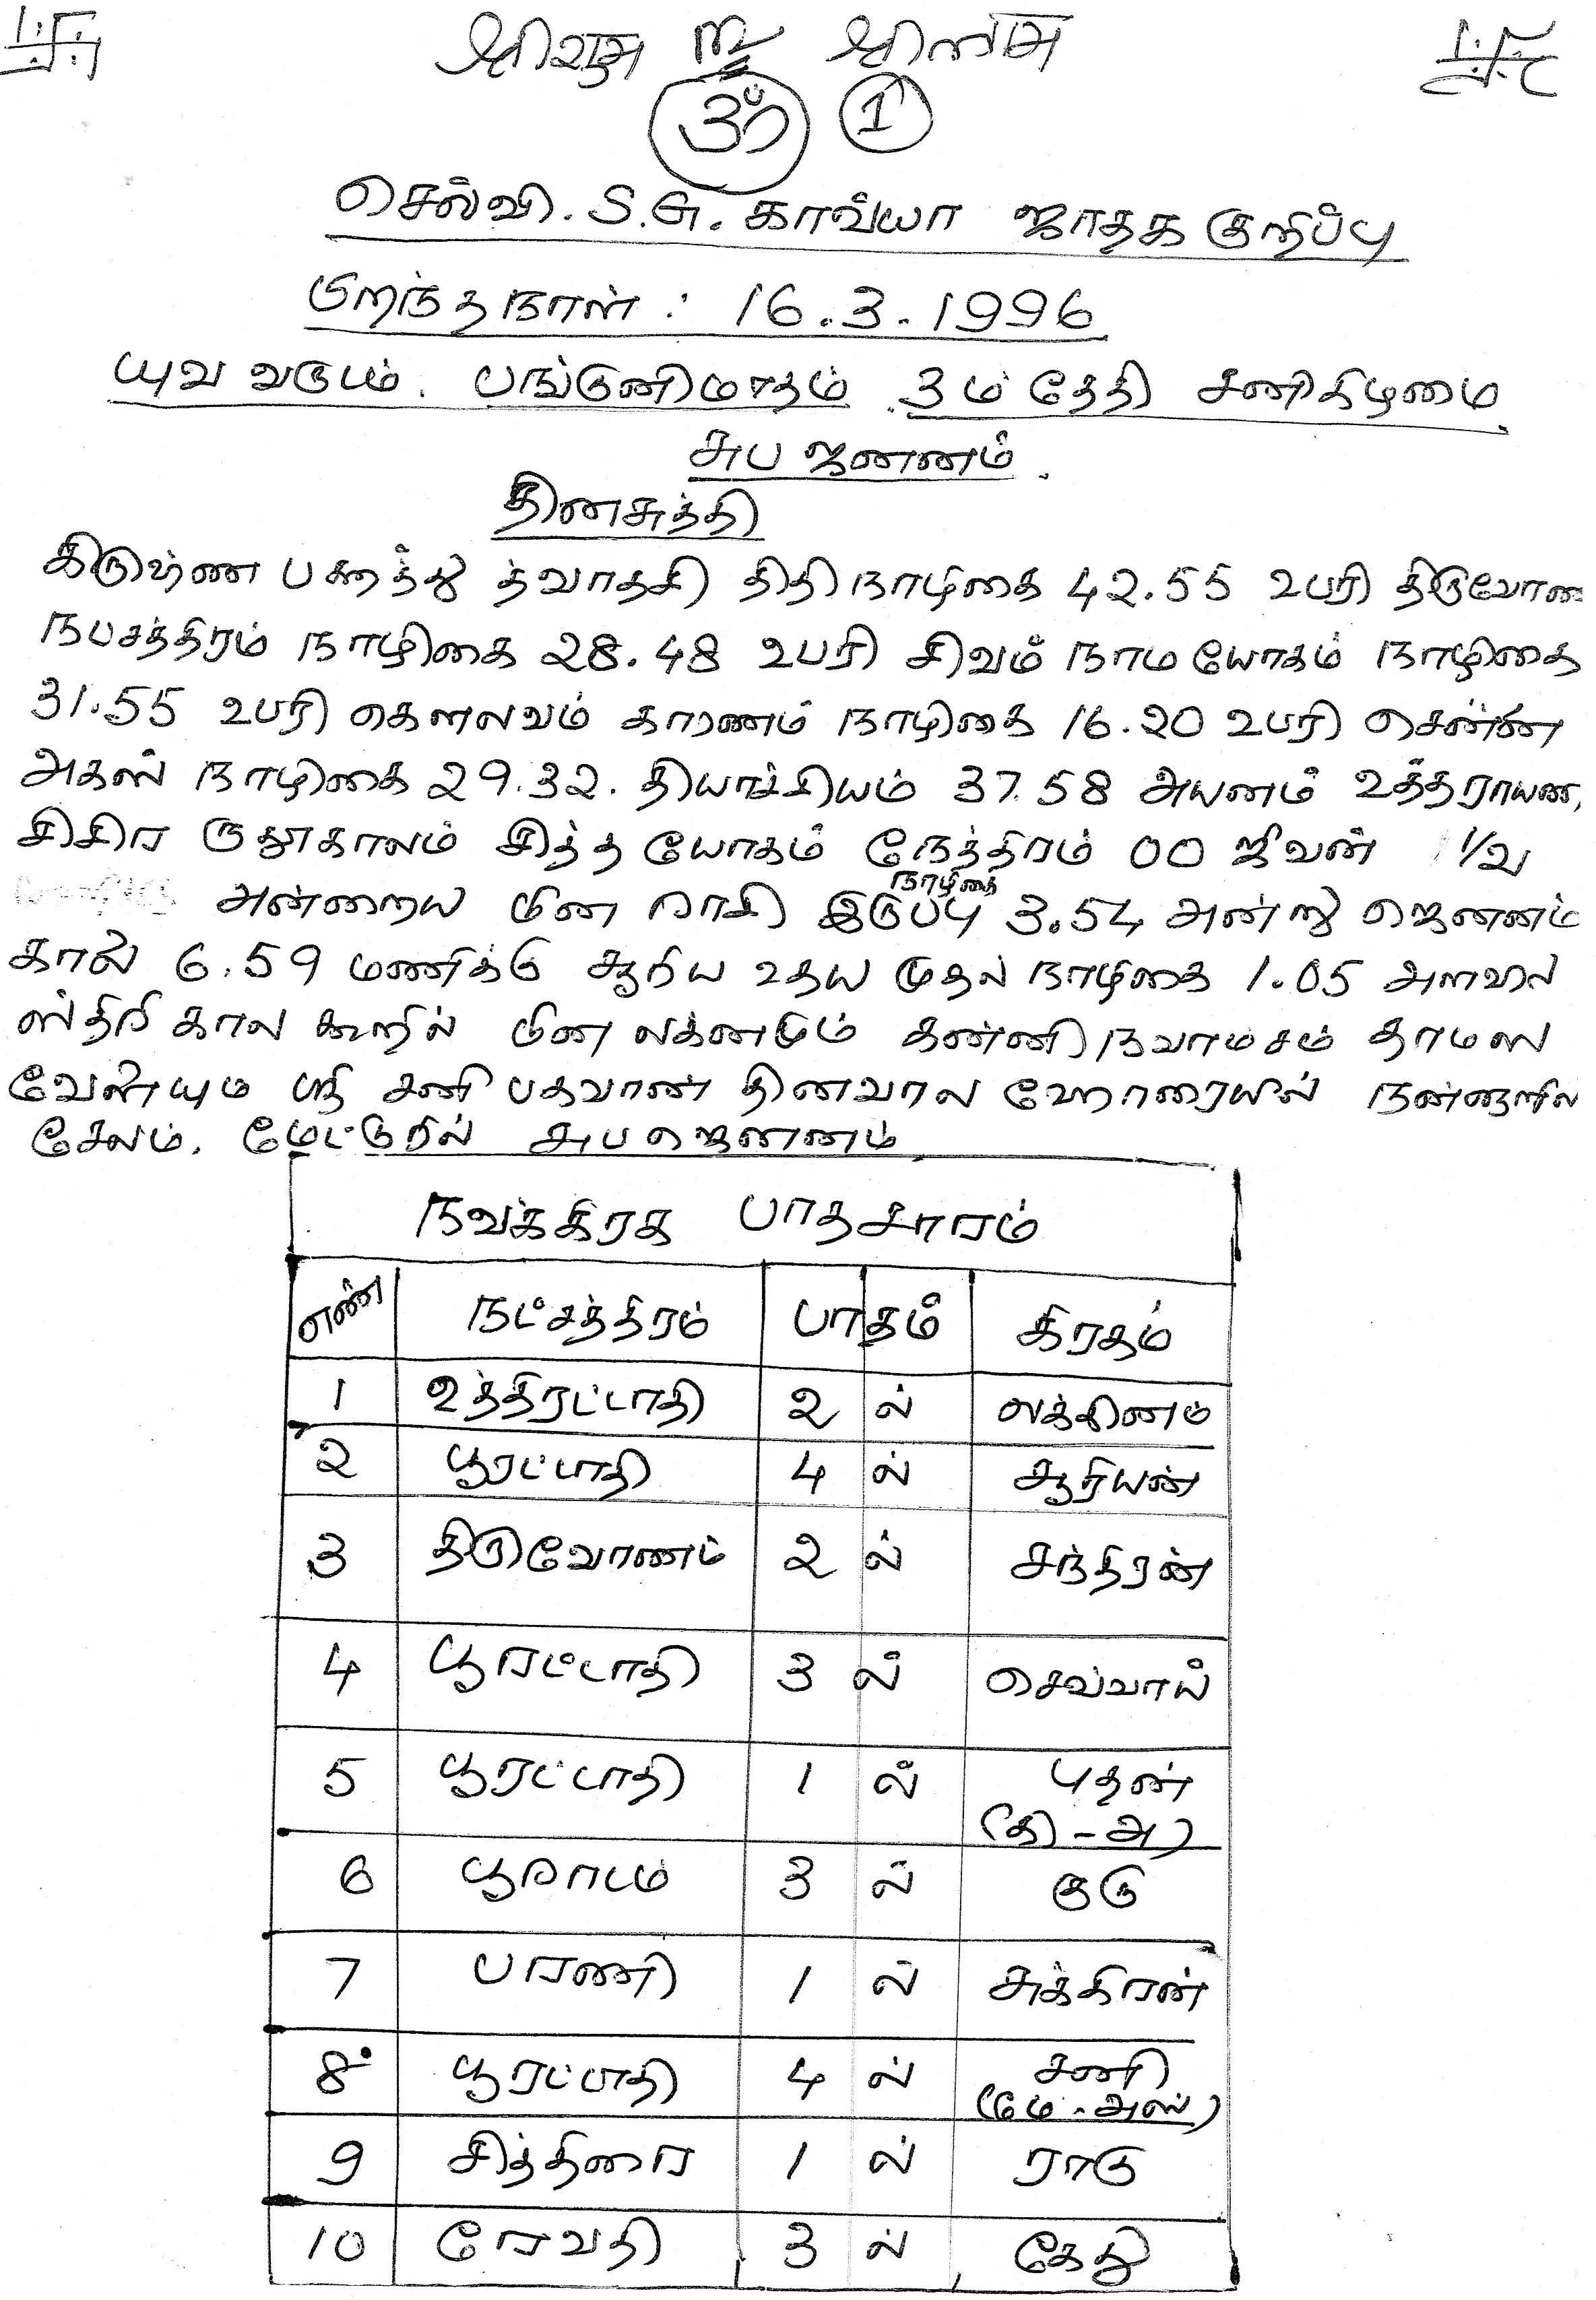 ஸ்ரீ
ஓம் 1
செல்வி. S.G. காவ்யா ஜாதக குறிப்பு
பிறந்தநாள் : 16.3.1996
யுவ வருடம். பங்குனிமாதம் 3ம் தேதி சனிகிழமை
சுப ஜனனம்.
தினசுத்தி
கிருஷ்ண பக்ஷத்து த்வாதசி திதி நாழிகை 42.55 உபரி திருவோண
நட்சத்திரம் நாழிகை 28.48 உபரி சிவம் நாம யோகம் நாழிகை
31.55 உபரி கௌலவம் கரணம் நாழிகை 16.20 உபரி
அகஸ் நாழிகை 29.32. தியாச்சியம் 37.58 அயனம் உத்தராயண,
சிசிர ருதுகாலம் சித்த யோகம் நேத்திரம் 00 ஜீவன் 1/2
அன்றைய மீன ராசி இருப்பு நாழிகை 3.54 அன்று ஜெனனம்
காலை 6.59 மணிக்கு சூரிய உதய முதல் நாழிகை 1.05 அளவில்
ஸ்திரி கால கூறில் மீன லக்னமும் கன்னி நவாம்சம் தாமஸ
வேளையும் ஸ்ரீ சனி பகவான் தினவார ஹோரையில் நன்னாளில்
சேலம். மேட்டூரில் சுபஜெனனம்
நவக்கிரக பாதசாரம்
எண் நட்சத்திரம் பாதம் கிரகம்
1 உத்திரட்டாதி 2 ல் லக்கினம்
2 பூரட்டாதி 4 ல் சூரியன்
3 திருவோணம் 2 ல் சந்திரன்
4 பூரட்டாதி 3 ல் செவ்வாய்
5 பூரட்டாதி 1 ல் புதன்
(கி - அ)
6 பூராடம் 3 ல் குரு
7 பரணி 1 ல் சுக்கிரன்
8 பூரட்டாதி 4 ல் சனி
(மே - அஸ்)
9 சித்திரை 1 ல் ராகு
10 ரேவதி 3 ல் கேது